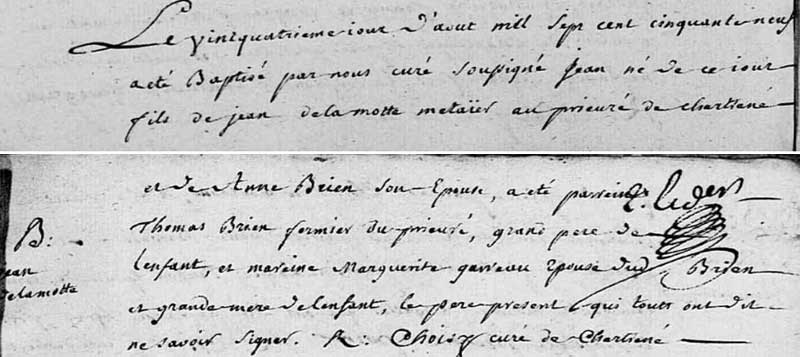 Le vintquatrieme jour d'aout mil sept cent cinquante neuf
a eté Baptisé par nous curé soussigné jean né de ce jour
fils de jean delamotte metaïer au prieuré de chartrené
et de Anne Brien son Epouse, a eté parrein
Thomas Brien fermier du prieuré, grand pere de
lenfant, et mareine Marguerite garreau Epouse dud Brien
et grande mere de lenfant, le pere present qui touts ont dit
ne savoir signer. R: Choisy curé de Chartrené
B:
jean
delamotte